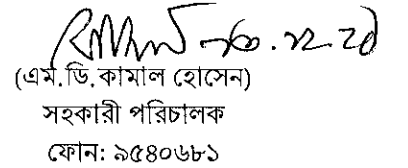 (এম.ডি.কামাল হোসেন)
সহকারী পরিচালক
ফোন: ৯৫৪০৬৮১